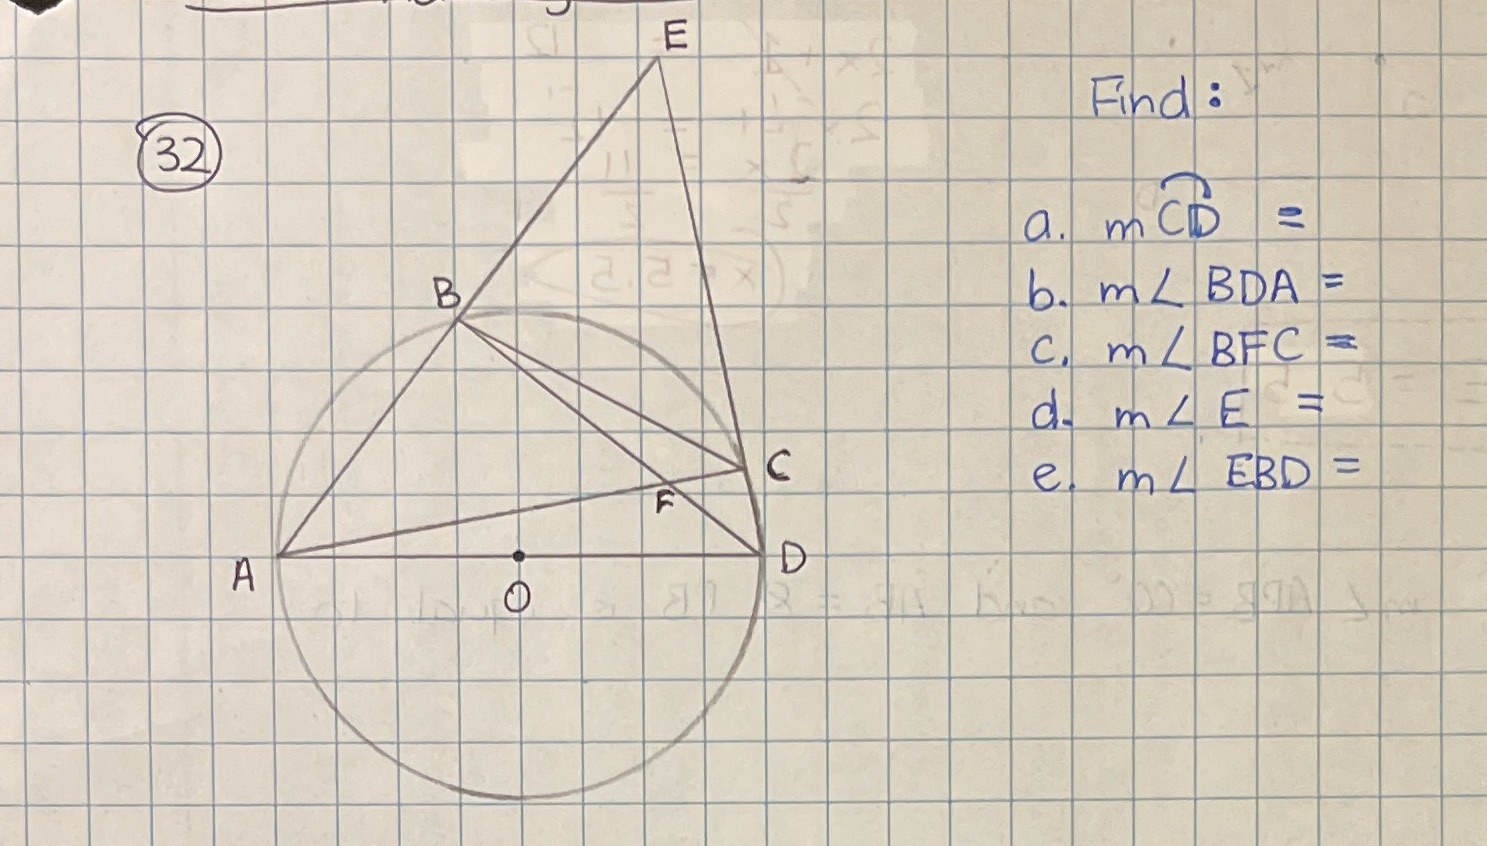 32
E
B
C
F
A
D
O
Find :
a. m CD =
b. m∠ BDA =
c. m∠ BFC =
d. m∠ E =
e. m∠ EBD =